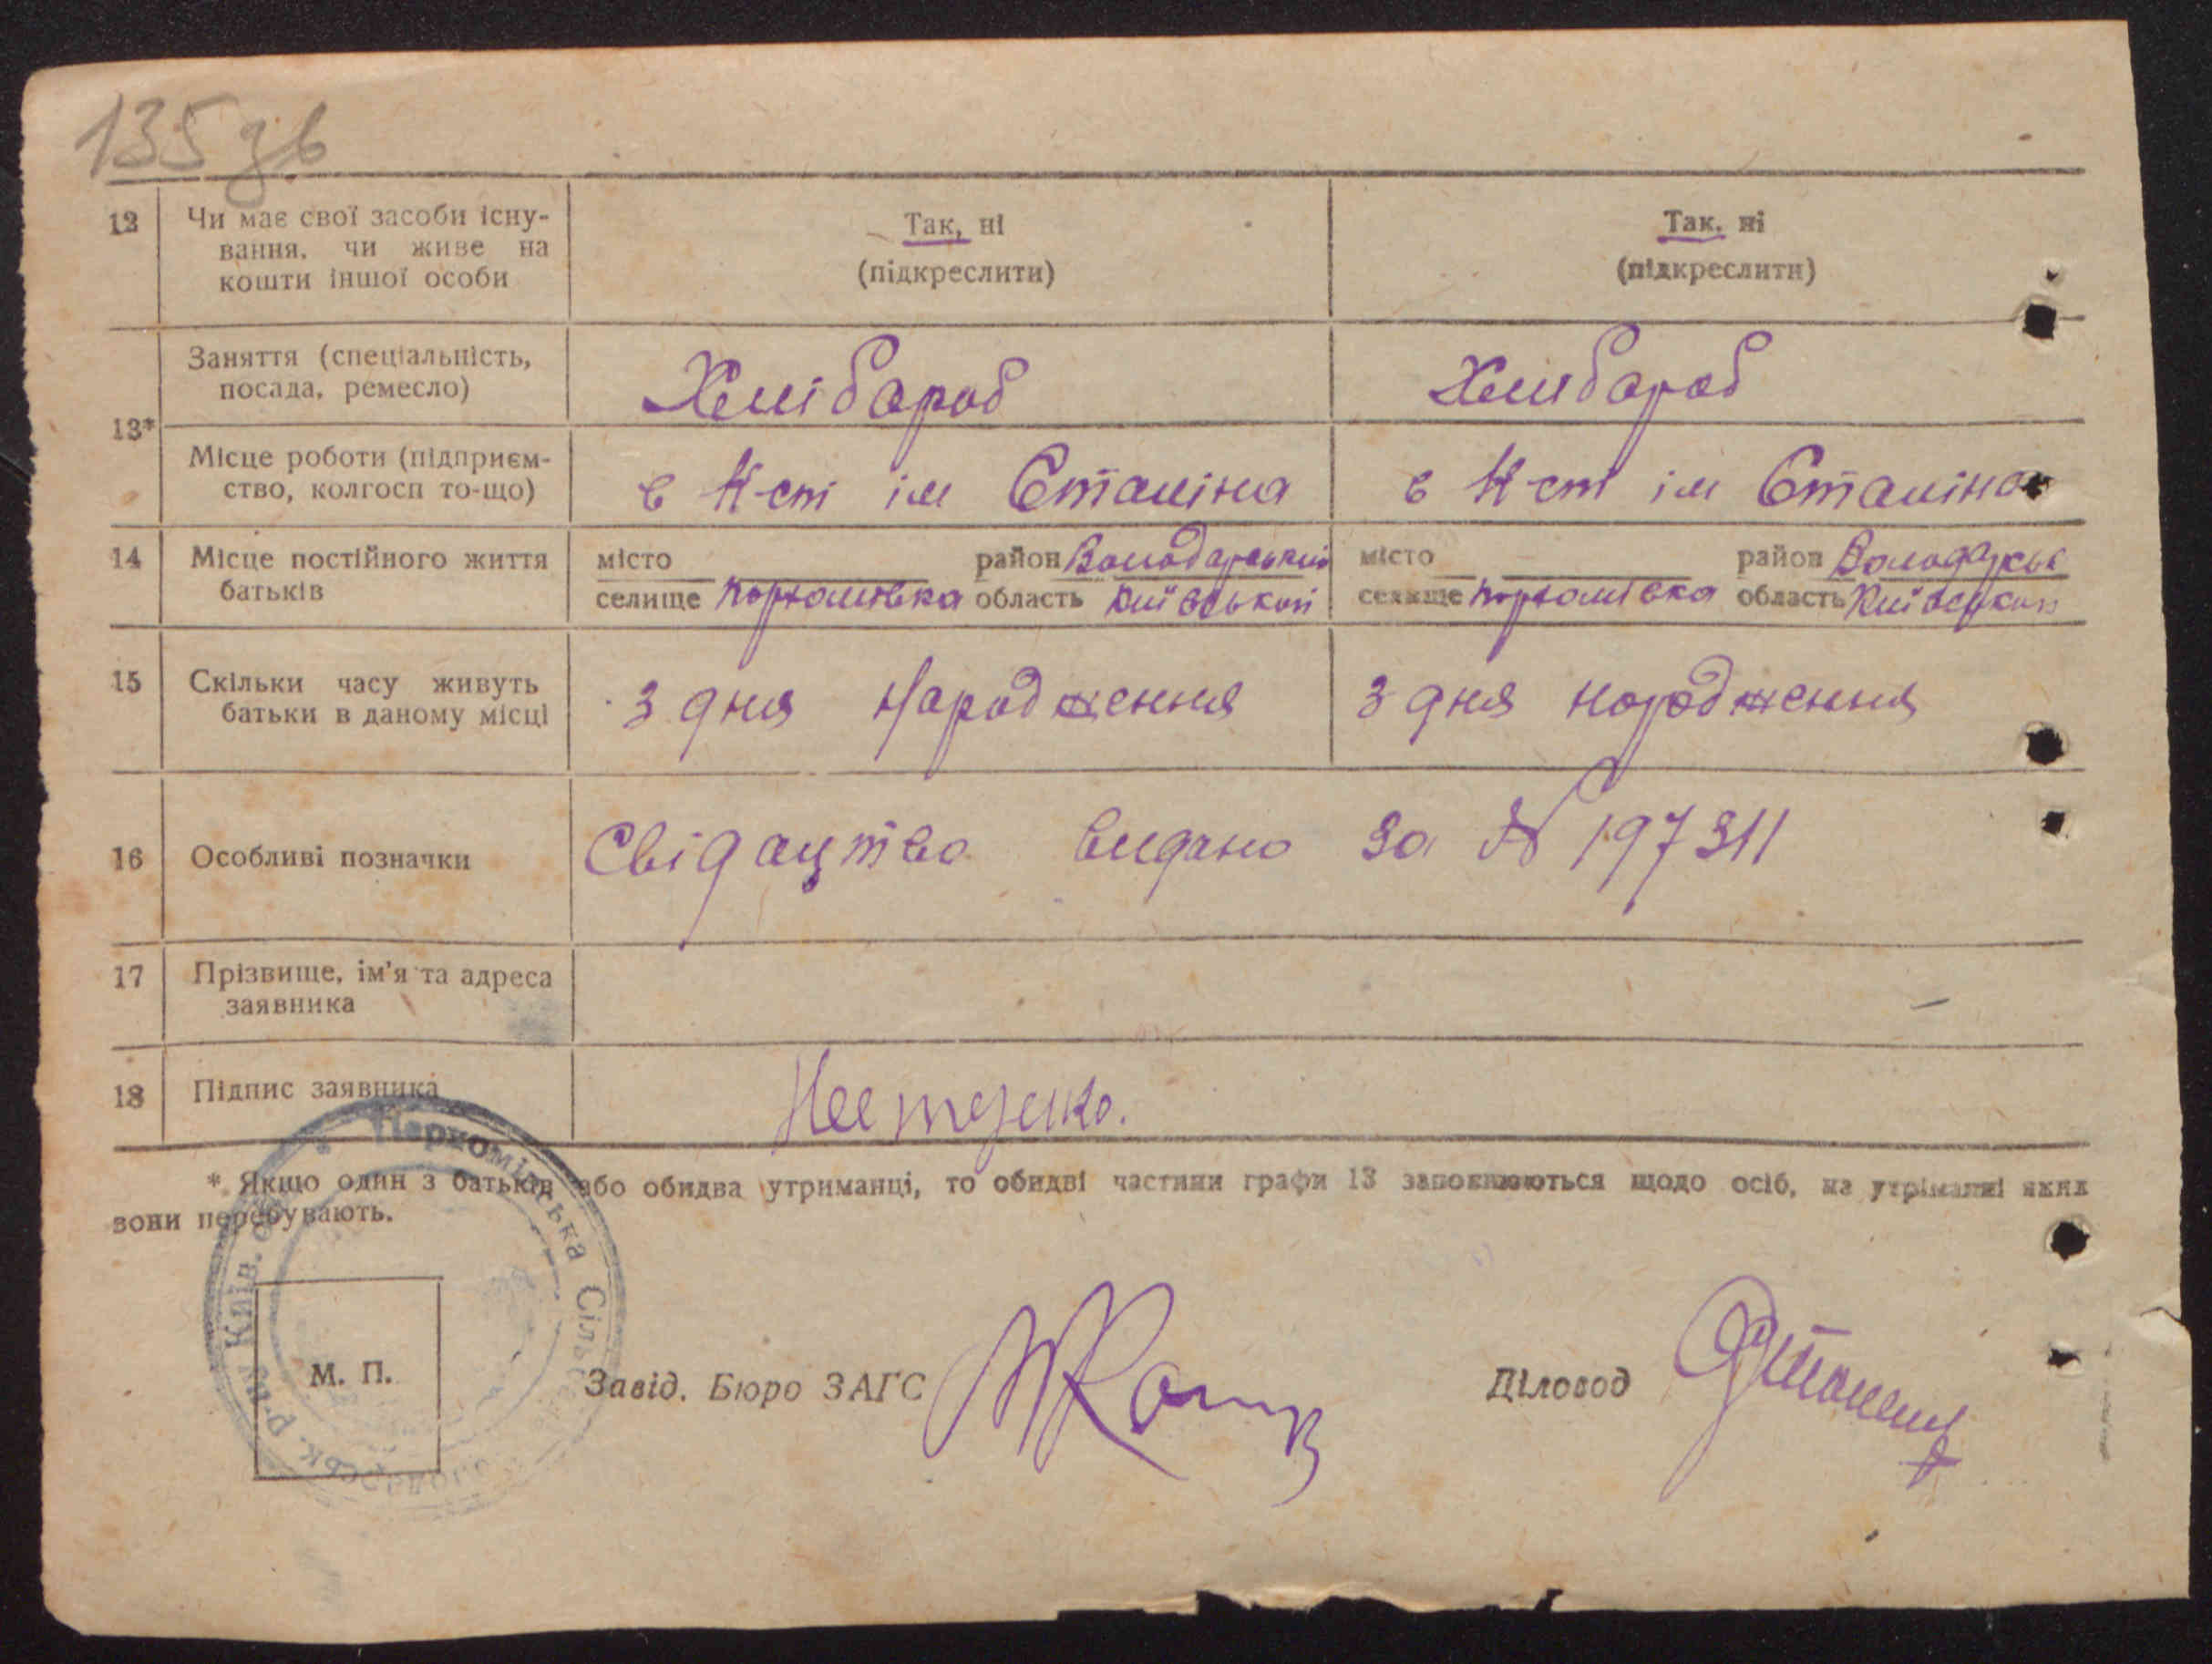 135 зв
12 Чи має свої засоби існу-
вання, чи живе на
кошти іншої особи
Так, ні
(підкреслити)
Так. ні
(підкреслити)
13*
Заняття (спеціальність,
посада, ремесло)
Хлібороб
Хлібороб
Місце роботи (підприєм-
ство, колгосп то-що)
в к-спі ім Сталіна
в к-спі ім Сталіна
14 Місце постійного життя
батьків
місто район Володарський
селище область Київської
місто район
селище область Київської
15 Скільки часу живуть
батьки в даному місці
з дня народження
з дня народження
16 Особливі позначки
Свідацтво видано за № 197311
17 Прізвище, ім'я та адреса
заявника
18 Підпис заявника
* Якщо один з батьків або обидва утриманці, то обидві частини графи 13 заповнюються щодо осіб, на утріманні яких
вони перебувають.
М. П.
Завід. Бюро ЗАГС
Діловод